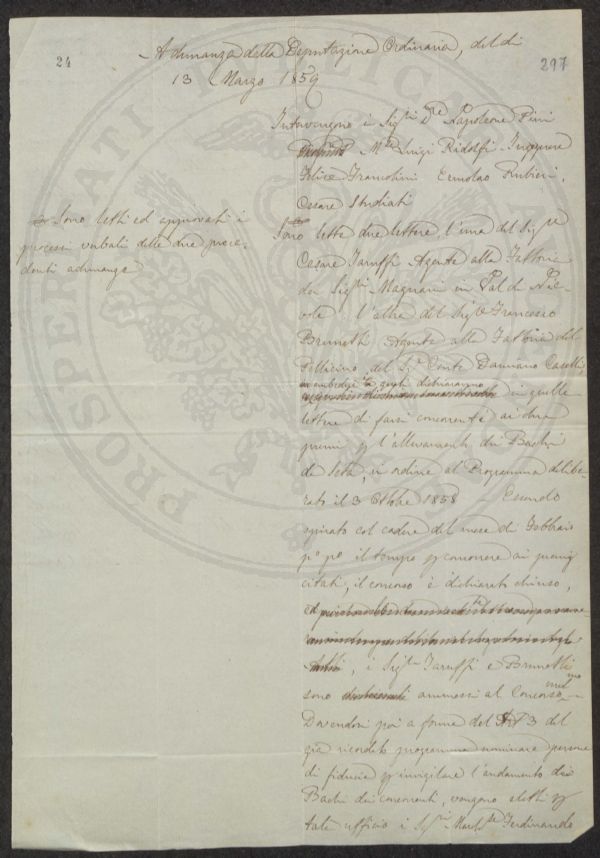 24
297
Adunanza della Deputazione Ordinaria, del dì
13 Marzo 1859
Intervengono i Sigri Dre Napoleone Pini
Mse Luigi Ridolfi Ingegnere
Felice Francolini Ermolao Rubieri,
Cesare Studiati
Sono letti ed approvati i
processi verbali delle due prece-
denti adunanze
Sono lette due lettere, l'una del Sigre
Cesare Taruffi Agente alla Fattoria
dei Sigri Magnani in Val di Nie-
vole, l'altra del Sigre Francesco
Brunetti Agente alla Fattoria del
Pellicino, del Sigr Conte Damiano Caselli,
i quali dichiararono in quelle
lettere di farsi concorrenti ai due
premi p l'allevamento dei Bachi
da Seta, in ordine al Programma delibe-
rato il 3 Ottobre 1858 Essendo
spirato col cadere del mese di Febbraio
po po il tempo p concorrere ai premj
citati, il concorso è dichiarato chiuso,
i Sigri Taruffi e Brunetti
sono ammessi al Concorso
Dovendosi poi a forma del 3 del
già ricordato programma nominare persone
di fiducia p invigilare l'andamento dei
Bachi dei concorrenti, vengono eletti p
tale ufficio i Sigri Marchse Ferdinando
PROSPERITATI PUBLICAE